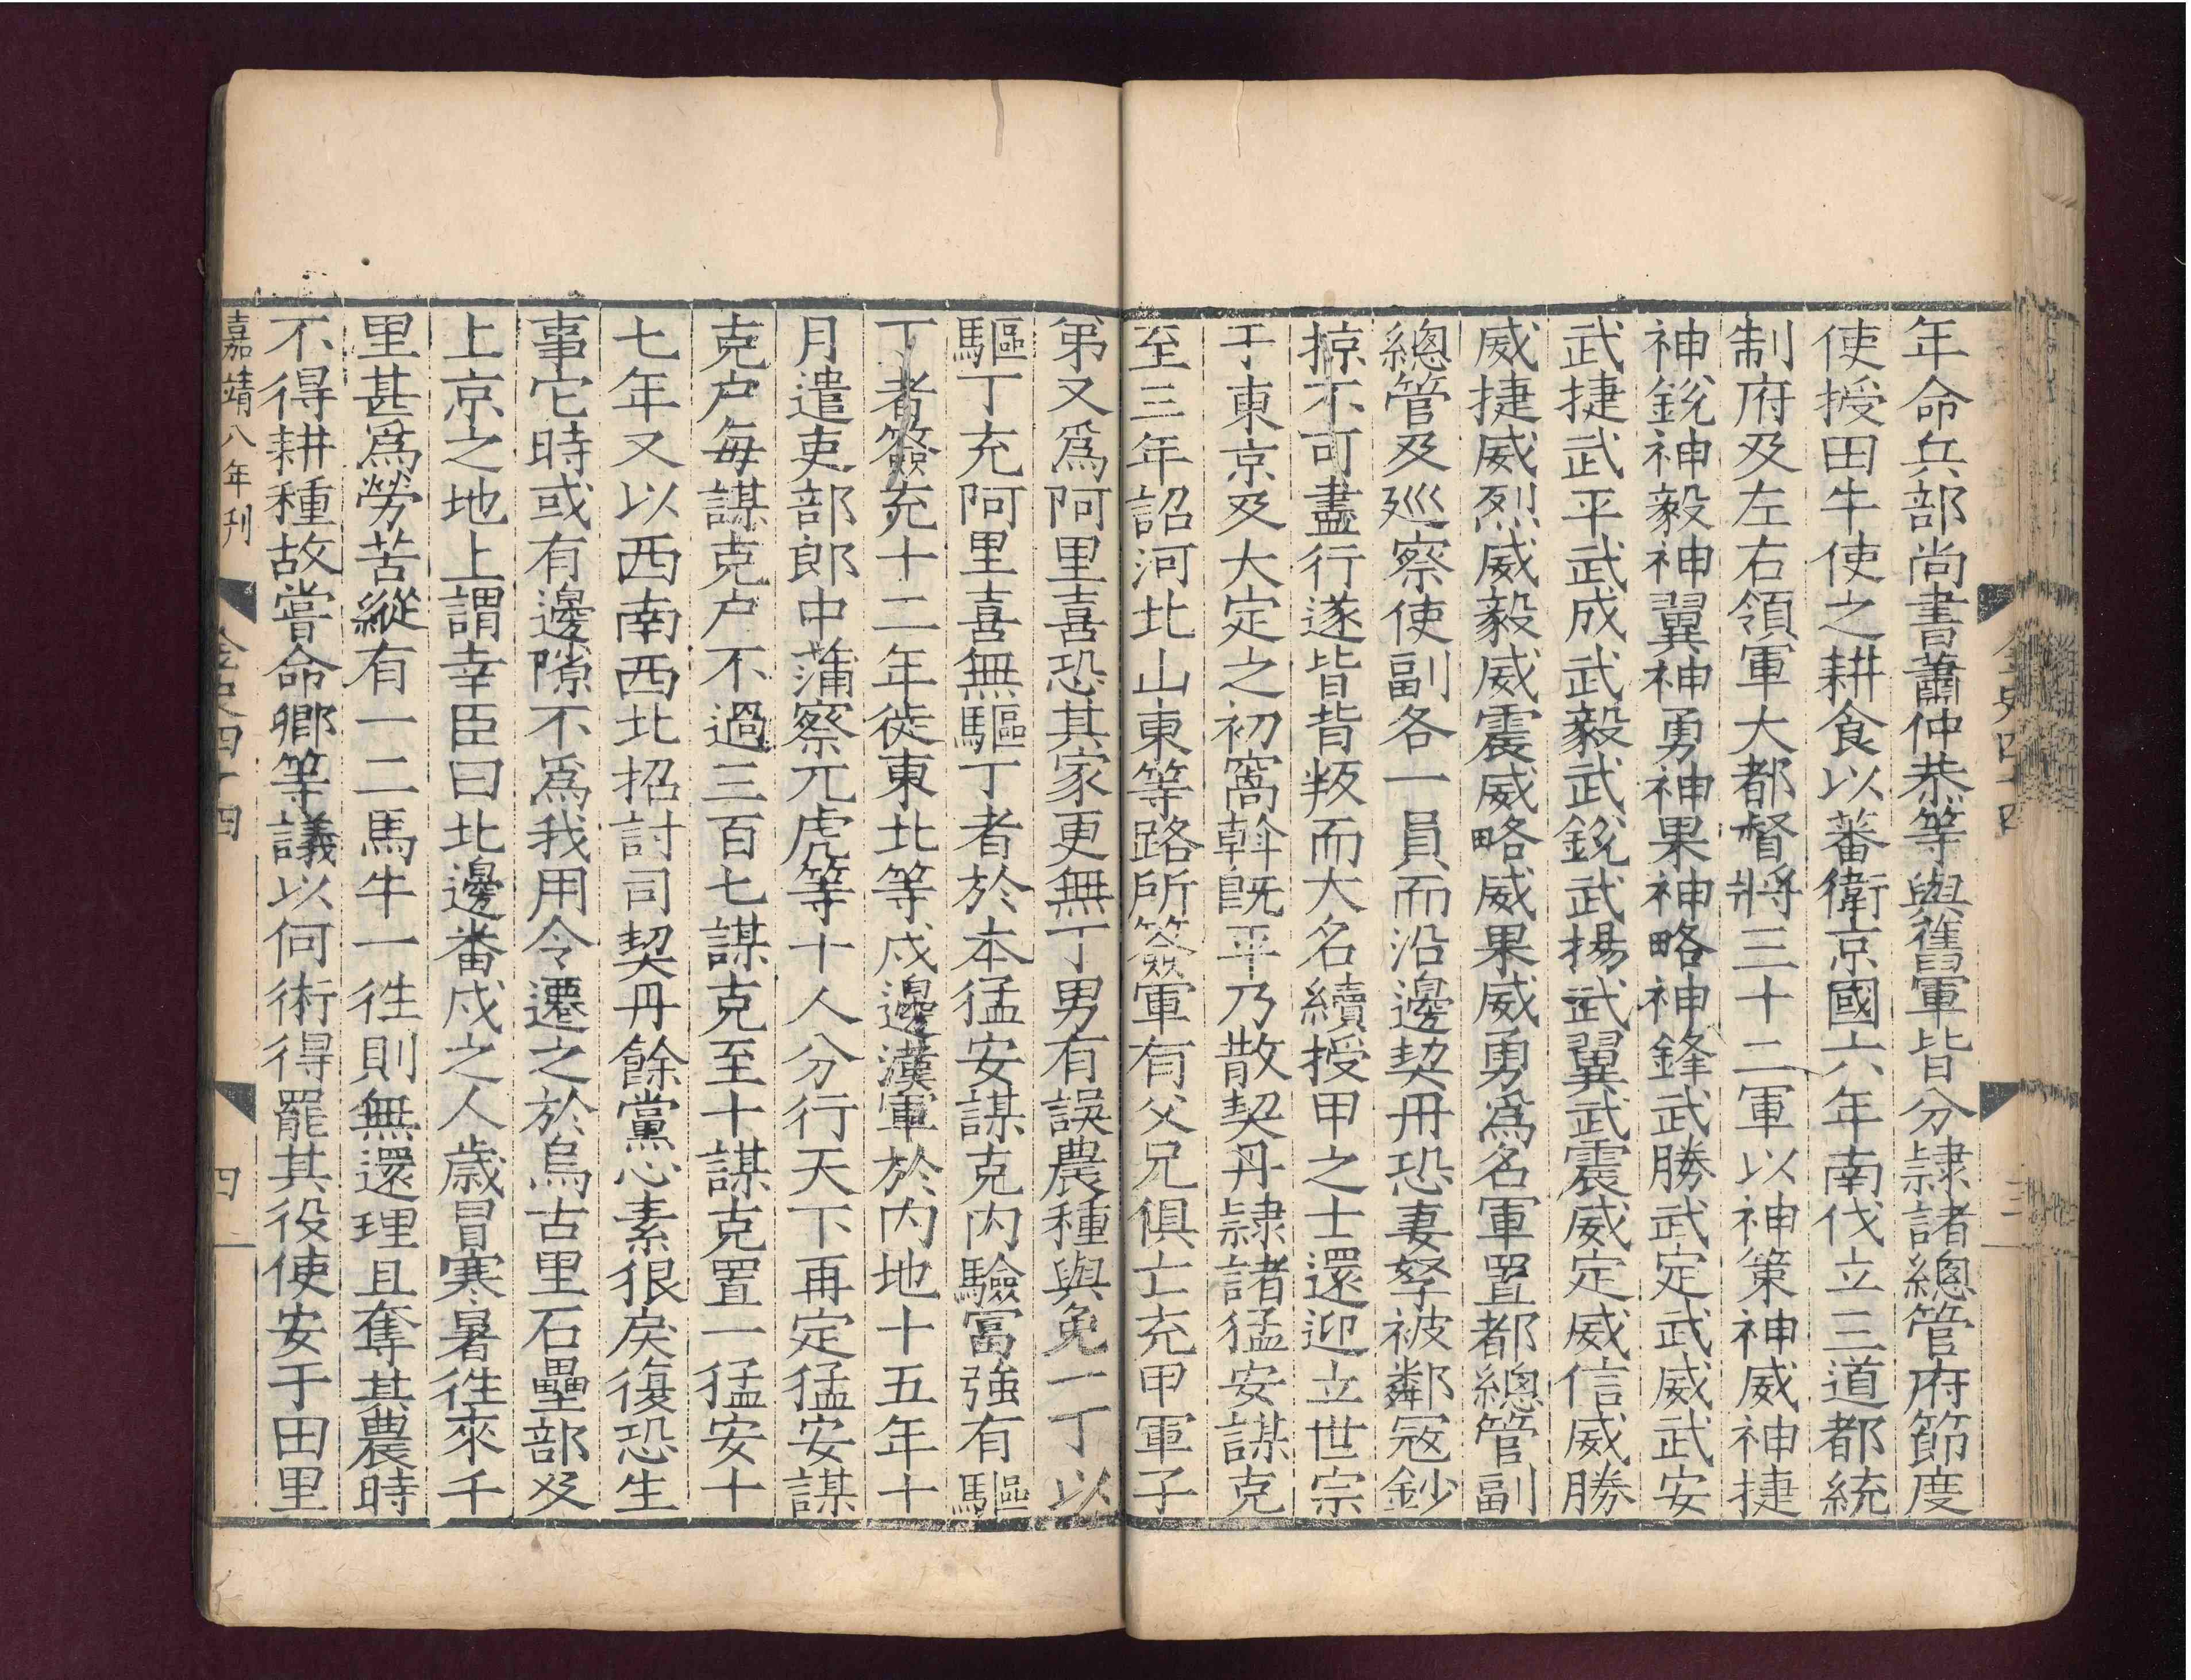 年命兵部尚書蕭仲恭等與舊軍皆分隷諸緫管府節度
使授田牛使之耕食以蕃衛京國六年南伐立三道都統
制府及左右領軍大都督將三十二軍以神策神威神捷
神銳神毅神翼神勇神果神略神鋒武勝武定武威武安
武捷武平武成武毅武銳武揚武翼武震威定威信威勝
威捷威烈威毅威震威略威果威勇爲名軍置都緫管副
緫管及廵察使副各一員而沿邊契丹恐妻孥被鄰冦鈔
掠不可盡行遂皆背叛而大名續授甲之士還迎立世宗
于東京及大定之初窩斡旣平乃散契丹隷諸猛安謀克
至三年詔河北山東等路所簽軍有父兄俱亡充甲軍子
弟又爲阿里喜恐其家更無丁男有誤農種與免一丁以
驅丁充阿里喜無驅丁者於本猛安謀克內驗富強有驅
丁者簽充十二年徙東北等戍邊漢軍於內地十五年十
月遣吏部郎中蒲察兀虎等十人分行天下再定猛安謀
克户每謀克户不過三百七謀克至十謀克置一猛安十
七年又以西南西北招討司契丹餘黨心素狠戾復恐生
事它時或有邊隙不爲我用令遷之於烏古里石壘部及
上京之地上謂宰臣曰北邊畨戍之人歳冒寒暑徃來千
里甚爲勞苦縱有一二馬牛一徃則無還理且奪其農時
不得耕種故嘗命卿等議以何術得罷其役使安于田里
嘉靖八年刊
金史四十四
四